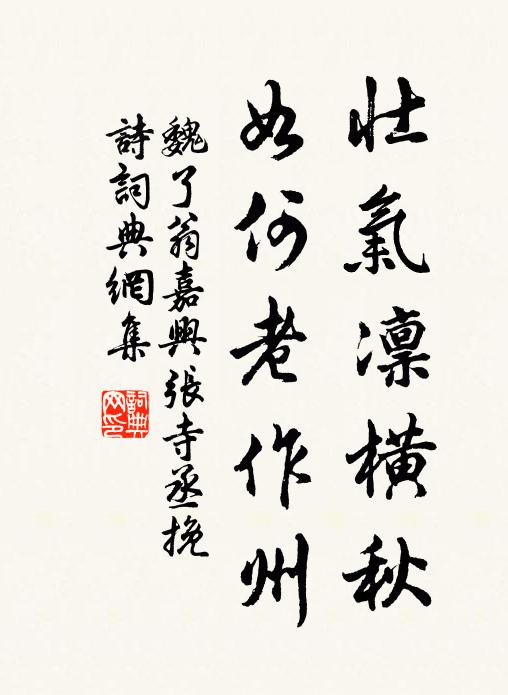 壯氣凜橫秋
如何老作州
魏了翁嘉興張寺丞挽
詩詞典網集
詞典网印